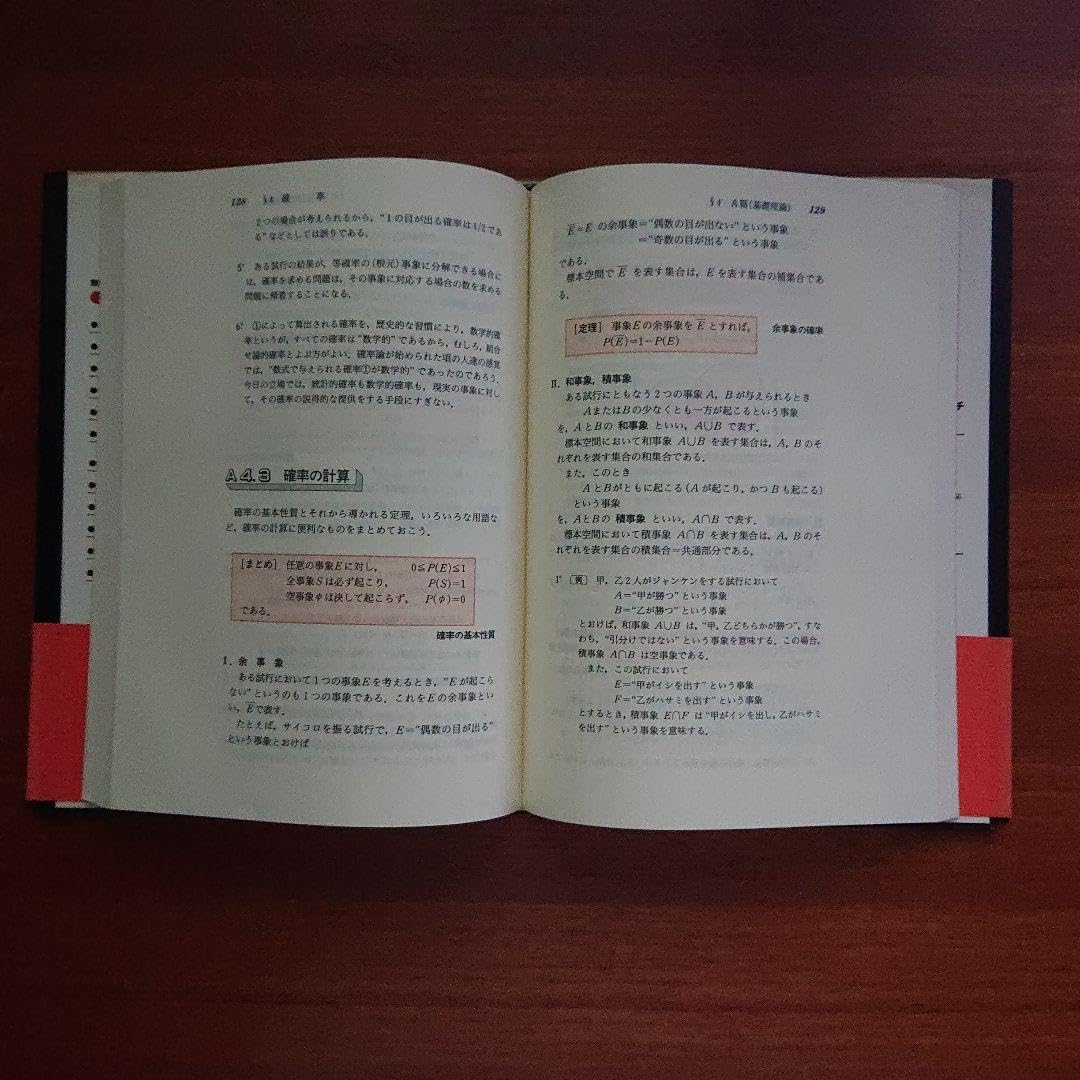 128 §4 確 率
2つの場合が考えられるから，“1の目が出る確率は1/2であ
る”などとしては誤りである．
5° ある試行の結果が，等確率の(根元)事象に分解できる場合に
は，確率を求める問題は，その事象に対応する場合の数を求める
問題に帰着することになる．
6° ①によって算出される確率を，歴史的な習慣により，数学的確
率というが，すべての確率は“数学的”であるから，むしろ，組合
せ論的確率とよぶ方がよい．確率論が始められた頃の人達の感覚
では，“数式で与えられる確率①が数学的”であったのであろう．
今日の立場では，統計的確率も数学的確率も，現実の事象に対し
て，その確率の説得的な提供をする手段にすぎない．
A4.3 確率の計算
確率の基本性質とそれから導かれる定理，いろいろな用語な
ど，確率の計算に便利なものをまとめておこう．
[まとめ] 任意の事象Eに対し， 0≦P(E)≦1
全事象Sは必ず起こり， P(S)=1
空事象φは決して起こらず， P(φ)=0
である．
確率の基本性質
I. 余事象
ある試行において1つの事象Eを考えるとき，“Eが起こら
ない”というのも1つの事象である．これをEの余事象とい
い，E̅で表す．
たとえば，サイコロを振る試行で，E=“偶数の目が出る”
という事象とおけば
§4 A篇(基礎理論) 129
E̅=Eの余事象=“偶数の目が出ない”という事象
=“奇数の目が出る”という事象
である．
標本空間でE̅を表す集合は，Eを表す集合の補集合であ
る．
[定理] 事象Eの余事象をE̅とすれば，
P(E̅)=1−P(E)
余事象の確率
II. 和事象，積事象
ある試行にともなう2つの事象A，Bが与えられるとき
AまたはBの少なくとも一方が起こるという事象
を，AとBの 和事象 といい，A∪Bで表す．
標本空間において和事象A∪Bを表す集合は，A，Bのそ
れぞれを表す集合の和集合である．
また，このとき
AとBがともに起こる(Aが起こり，かつBも起こる)
という事象
を，AとBの 積事象 といい，A∩Bで表す．
標本空間において積事象A∩Bを表す集合は，A，Bのそ
れぞれを表す集合の積集合=共通部分である．
1° [例] 甲，乙2人がジャンケンをする試行において
A=“甲が勝つ”という事象
B=“乙が勝つ”という事象
とおけば，和事象A∪Bは，“甲，乙どちらかが勝つ”，すな
わち，“引分けではない”という事象を意味する．この場合，
積事象A∩Bは空事象である．
また，この試行において
E=“甲がイシを出す”という事象
F=“乙がハサミを出す”という事象
とするとき，積事象E∩Fは“甲がイシを出し，乙がハサミ
を出す”という事象を意味する．